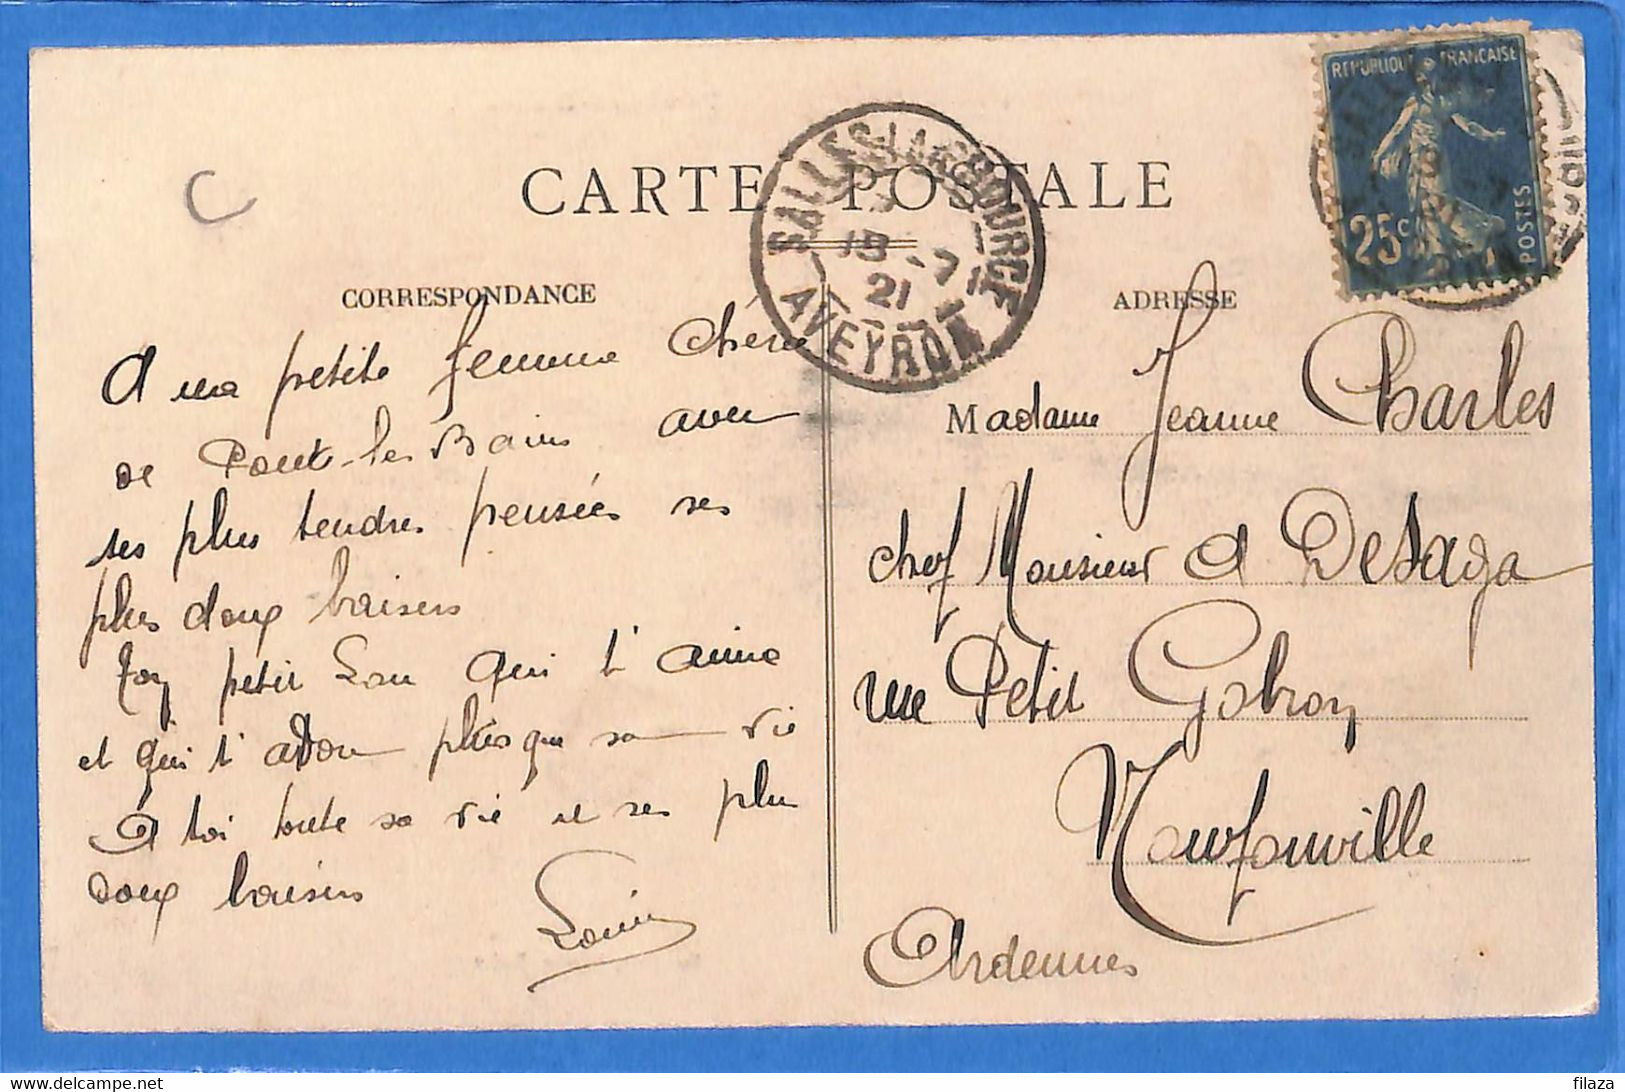 C
CARTE POSTALE
SALLES-LA-SOURCE
15 -7
21
AVEYRON
REPUBLIQUE FRANCAISE
25c
POSTES
CORRESPONDANCE
ADRESSE
A ma petite femme chérie
de Pont-les-Bains avec
ses plus tendres pensées ses
plus doux baisers
Ton petit Lou qui t'aime
et qui t'adore plus que sa vie
A toi toute sa vie et ses plus
doux baisers
Louis
Madame Jeanne Charles
chef Monsieur A Desaga
rue Petit Gobron
Neufmanville
Ardennes
www.delcampe.net
filaza